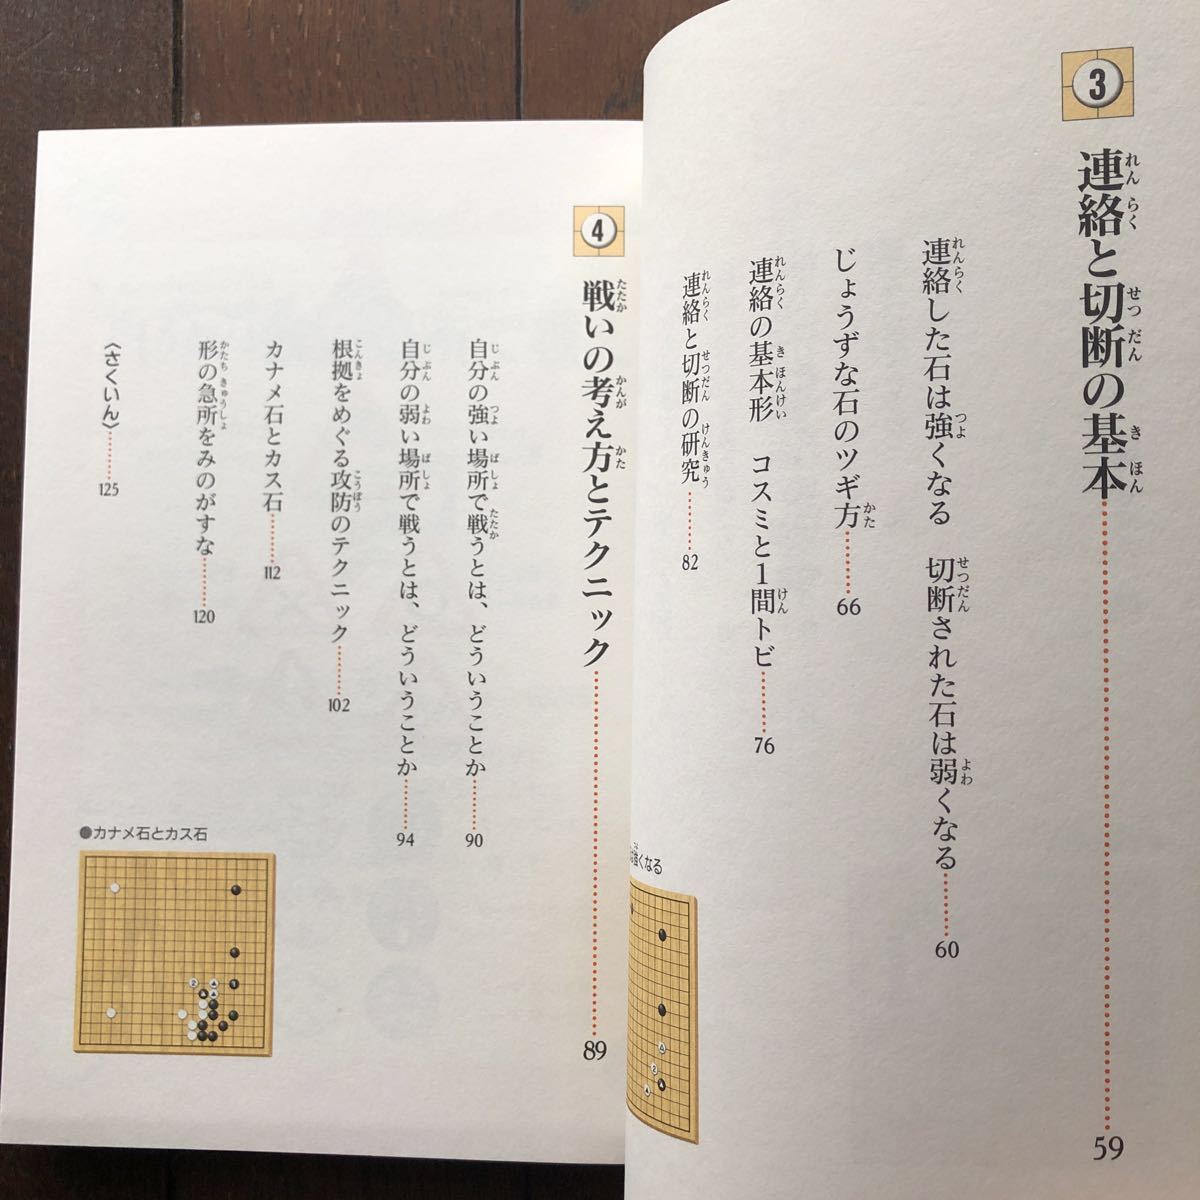 3
連絡と切断の基本……59
連絡した石は強くなる　切断された石は弱くなる……60
じょうずな石のツギ方……66
連絡の基本形　コスミと1間トビ……76
連絡と切断の研究……82
くなる
4
戦いの考え方とテクニック……89
自分の強い場所で戦うとは、どういうことか……90
自分の弱い場所で戦うとは、どういうことか……94
根拠をめぐる攻防のテクニック……102
カナメ石とカス石……112
形の急所をみのがすな……120
〈さくいん〉……125
●カナメ石とカス石